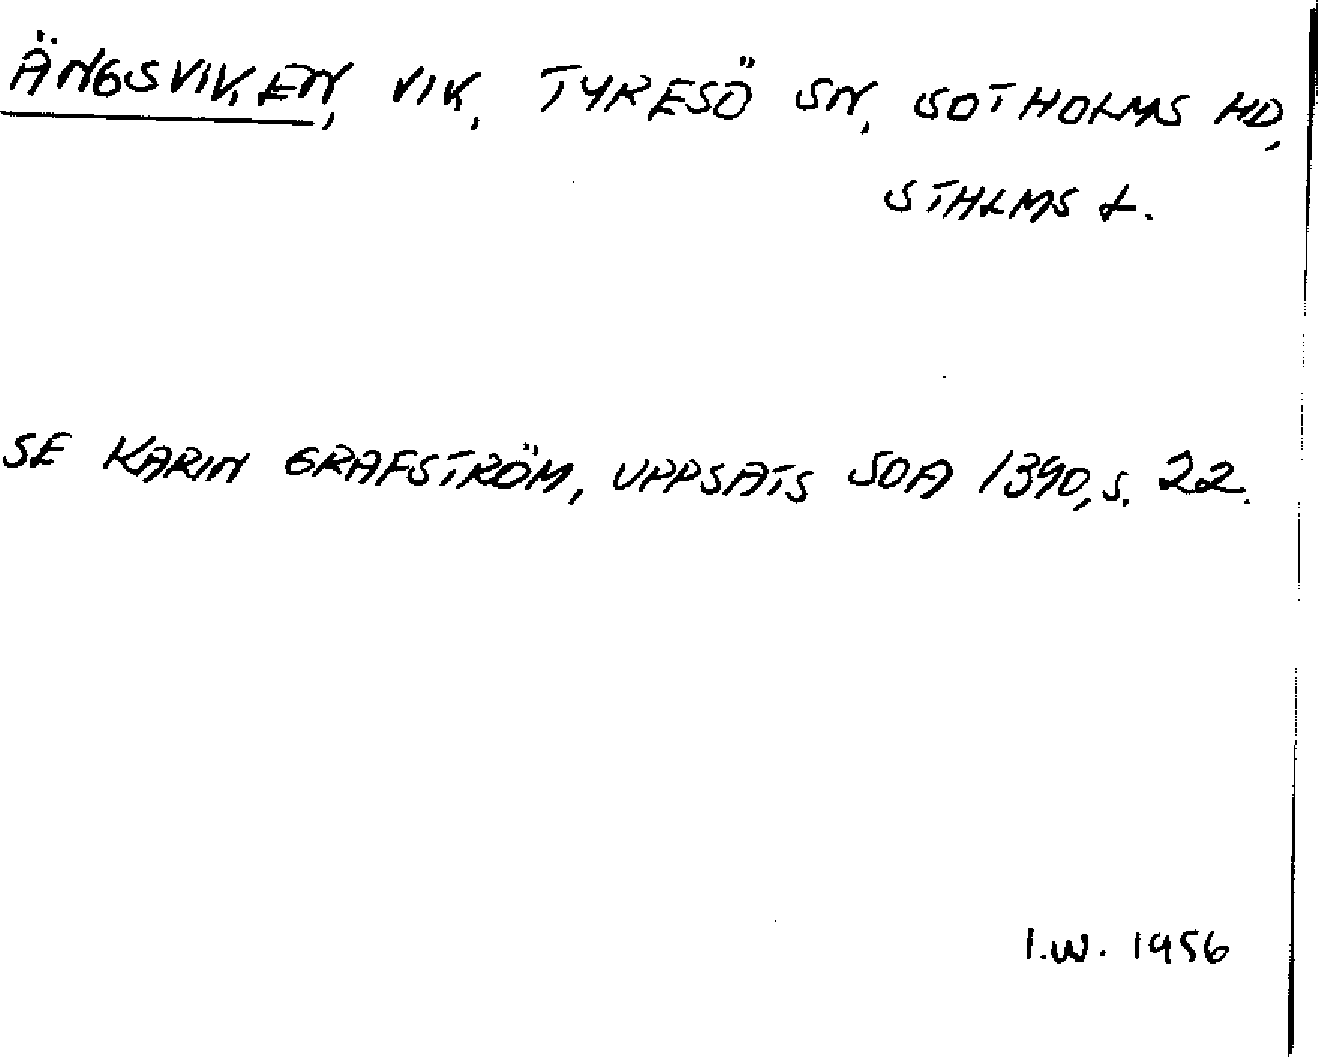 ÄNGSVIKEN, VIK, TYRESÖ SN, SOTHOLMS HD,
STHLMS L.
SE KARIN GRAFSTRÖM, UPPSATS SOA 1390, S. 22.
I.W. 1956